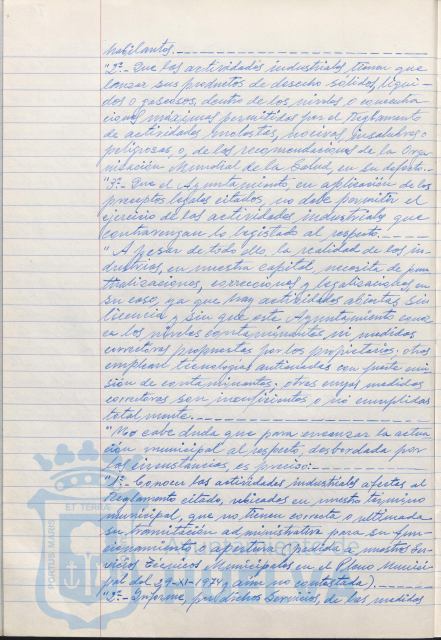 habitantes.
"2º.- Que las actividades industriales tienen que
lanzar sus productos de desecho sólidos, líqui-
dos o gaseosos, dentro de los niveles o concentra
ciones máximas permitidas por el Reglamento
de actividades molestas, nocivas, insalubres o
peligrosas o, de las recomendaciones de la Orga-
nización Mundial de la Salud, en su defecto.-
"3º.- Que el Ayuntamiento, en aplicación de los
preceptos legales citados, no debe permitir el
ejercicio de las actividades industriales que
contravengan lo legislado al respecto.
"A pesar de todo ello, la realidad de las in-
dustrias, en nuestra capital, necesita de pun
tualizaciones, correcciones y legalizaciones en
su caso, ya que hay actividades abiertas sin
licencia y sin que este Ayuntamiento conoz
ca los niveles contaminantes, ni medidas
correctoras propuestas por los propietarios; otras
emplean tecnologías anticuadas con fuerte emi
sión de contaminantes; otras cuyas medidas
correctoras son insuficientes o no cumplidas
totalmente.
"No cabe duda que para encauzar la actua
ción municipal al respecto, desbordada por
las circunstancias, es preciso:-
"1º.- Conocer las actividades industriales afectas al
Reglamento citado, ubicadas en nuestro término
municipal, que no tienen correcta o ultimada
su tramitación administrativa para su fun-
cionamiento o apertura (pedida a nuestros Ser-
vicios Técnicos Municipales en el Pleno Munici-
pal del 29-XI-1974 y aún no contestada).
"2º.- Informe, por dichos Servicios, de las medidas
ET TERRA
PORTUS MARIS